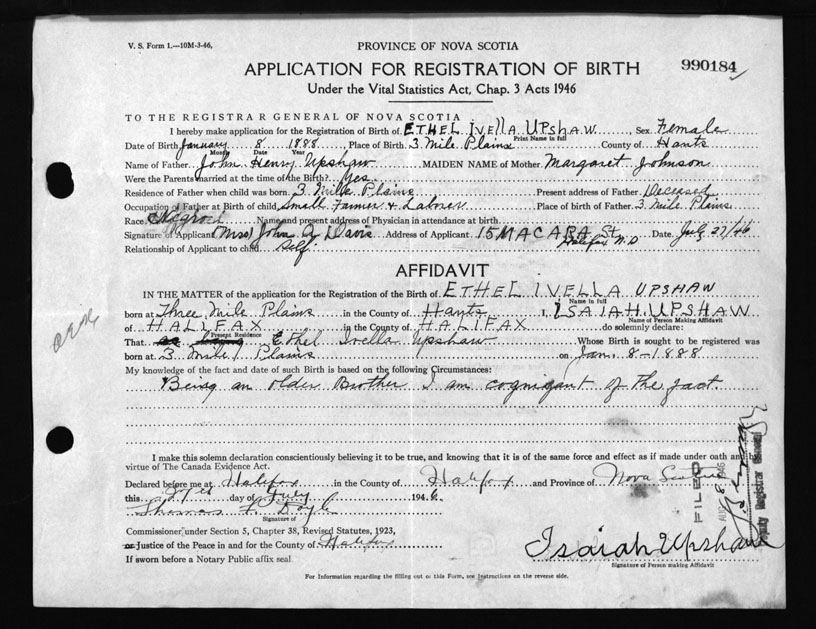 V. S. Form 1.—10M-3-46,
PROVINCE OF NOVA SCOTIA
990184
APPLICATION FOR REGISTRATION OF BIRTH
Under the Vital Statistics Act, Chap. 3 Acts 1946
TO THE REGISTRAR GENERAL OF NOVA SCOTIA
I hereby make application for the Registration of Birth of ETHEL IVELLA UPSHAW, Sex Female
Print Name in full
Date of Birth January 8, 1888 Place of Birth 3 Mile Plains County of Hants
Month Date Year
Name of Father John Henry Upshaw MAIDEN NAME of Mother Margaret Johnson
Were the Parents married at time of the Birth? Yes
Residence of Father when child was born 3 Mile Plains Present address of Father Deceased
Occupation of Father at Birth of child Small Farmer & Laborer Place of birth of Father 3 Mile Plains
Race Negroid Name and present address of Physician in attendance at birth
Signature of Applicant (Mrs) John A Davis Address of Applicant 15 MACARA St. Halifax N.S Date July 27/46
Relationship of Applicant to child Self
AFFIDAVIT
IN THE MATTER of the application for the Registration of Birth of ETHEL IVELLA UPSHAW
Name in full
born at Three Mile Plains in the County of Hants I, ISAIAH UPSHAW
Name of Person Making Affidavit
of HALIFAX in the County of HALIFAX do solemnly declare:
Present Residence
That Ethel Ivella Upshaw Whose Birth is sought to be registered was
born at 3 Mile Plains on Jan. 8-1888
My knowledge of the fact and date of such Birth is based on the following Circumstances:
Being an older Brother I am cognizant of the fact.
I make this solemn declaration conscientiously believing it to be true, and knowing that it is of the same force and effect as if made under oath and by
virtue of The Canada Evidence Act.
Declared before me at Halifax in the County of Halifax and Province of Nova Scotia
this 27th day of July 1946.
Thomas F. Doyle
Signature of
Commissioner under Section 5, Chapter 38, Revised Statutes, 1923,
or Justice of the Peace in and for the County of Halifax
If sworn before a Notary Public affix seal
FILED
AUG 8 1946
Deputy Registrar General
Isaiah Upshaw
Signature of Person making Affidavit
For Information regarding the filling out of this Form, see Instructions on the reverse side.